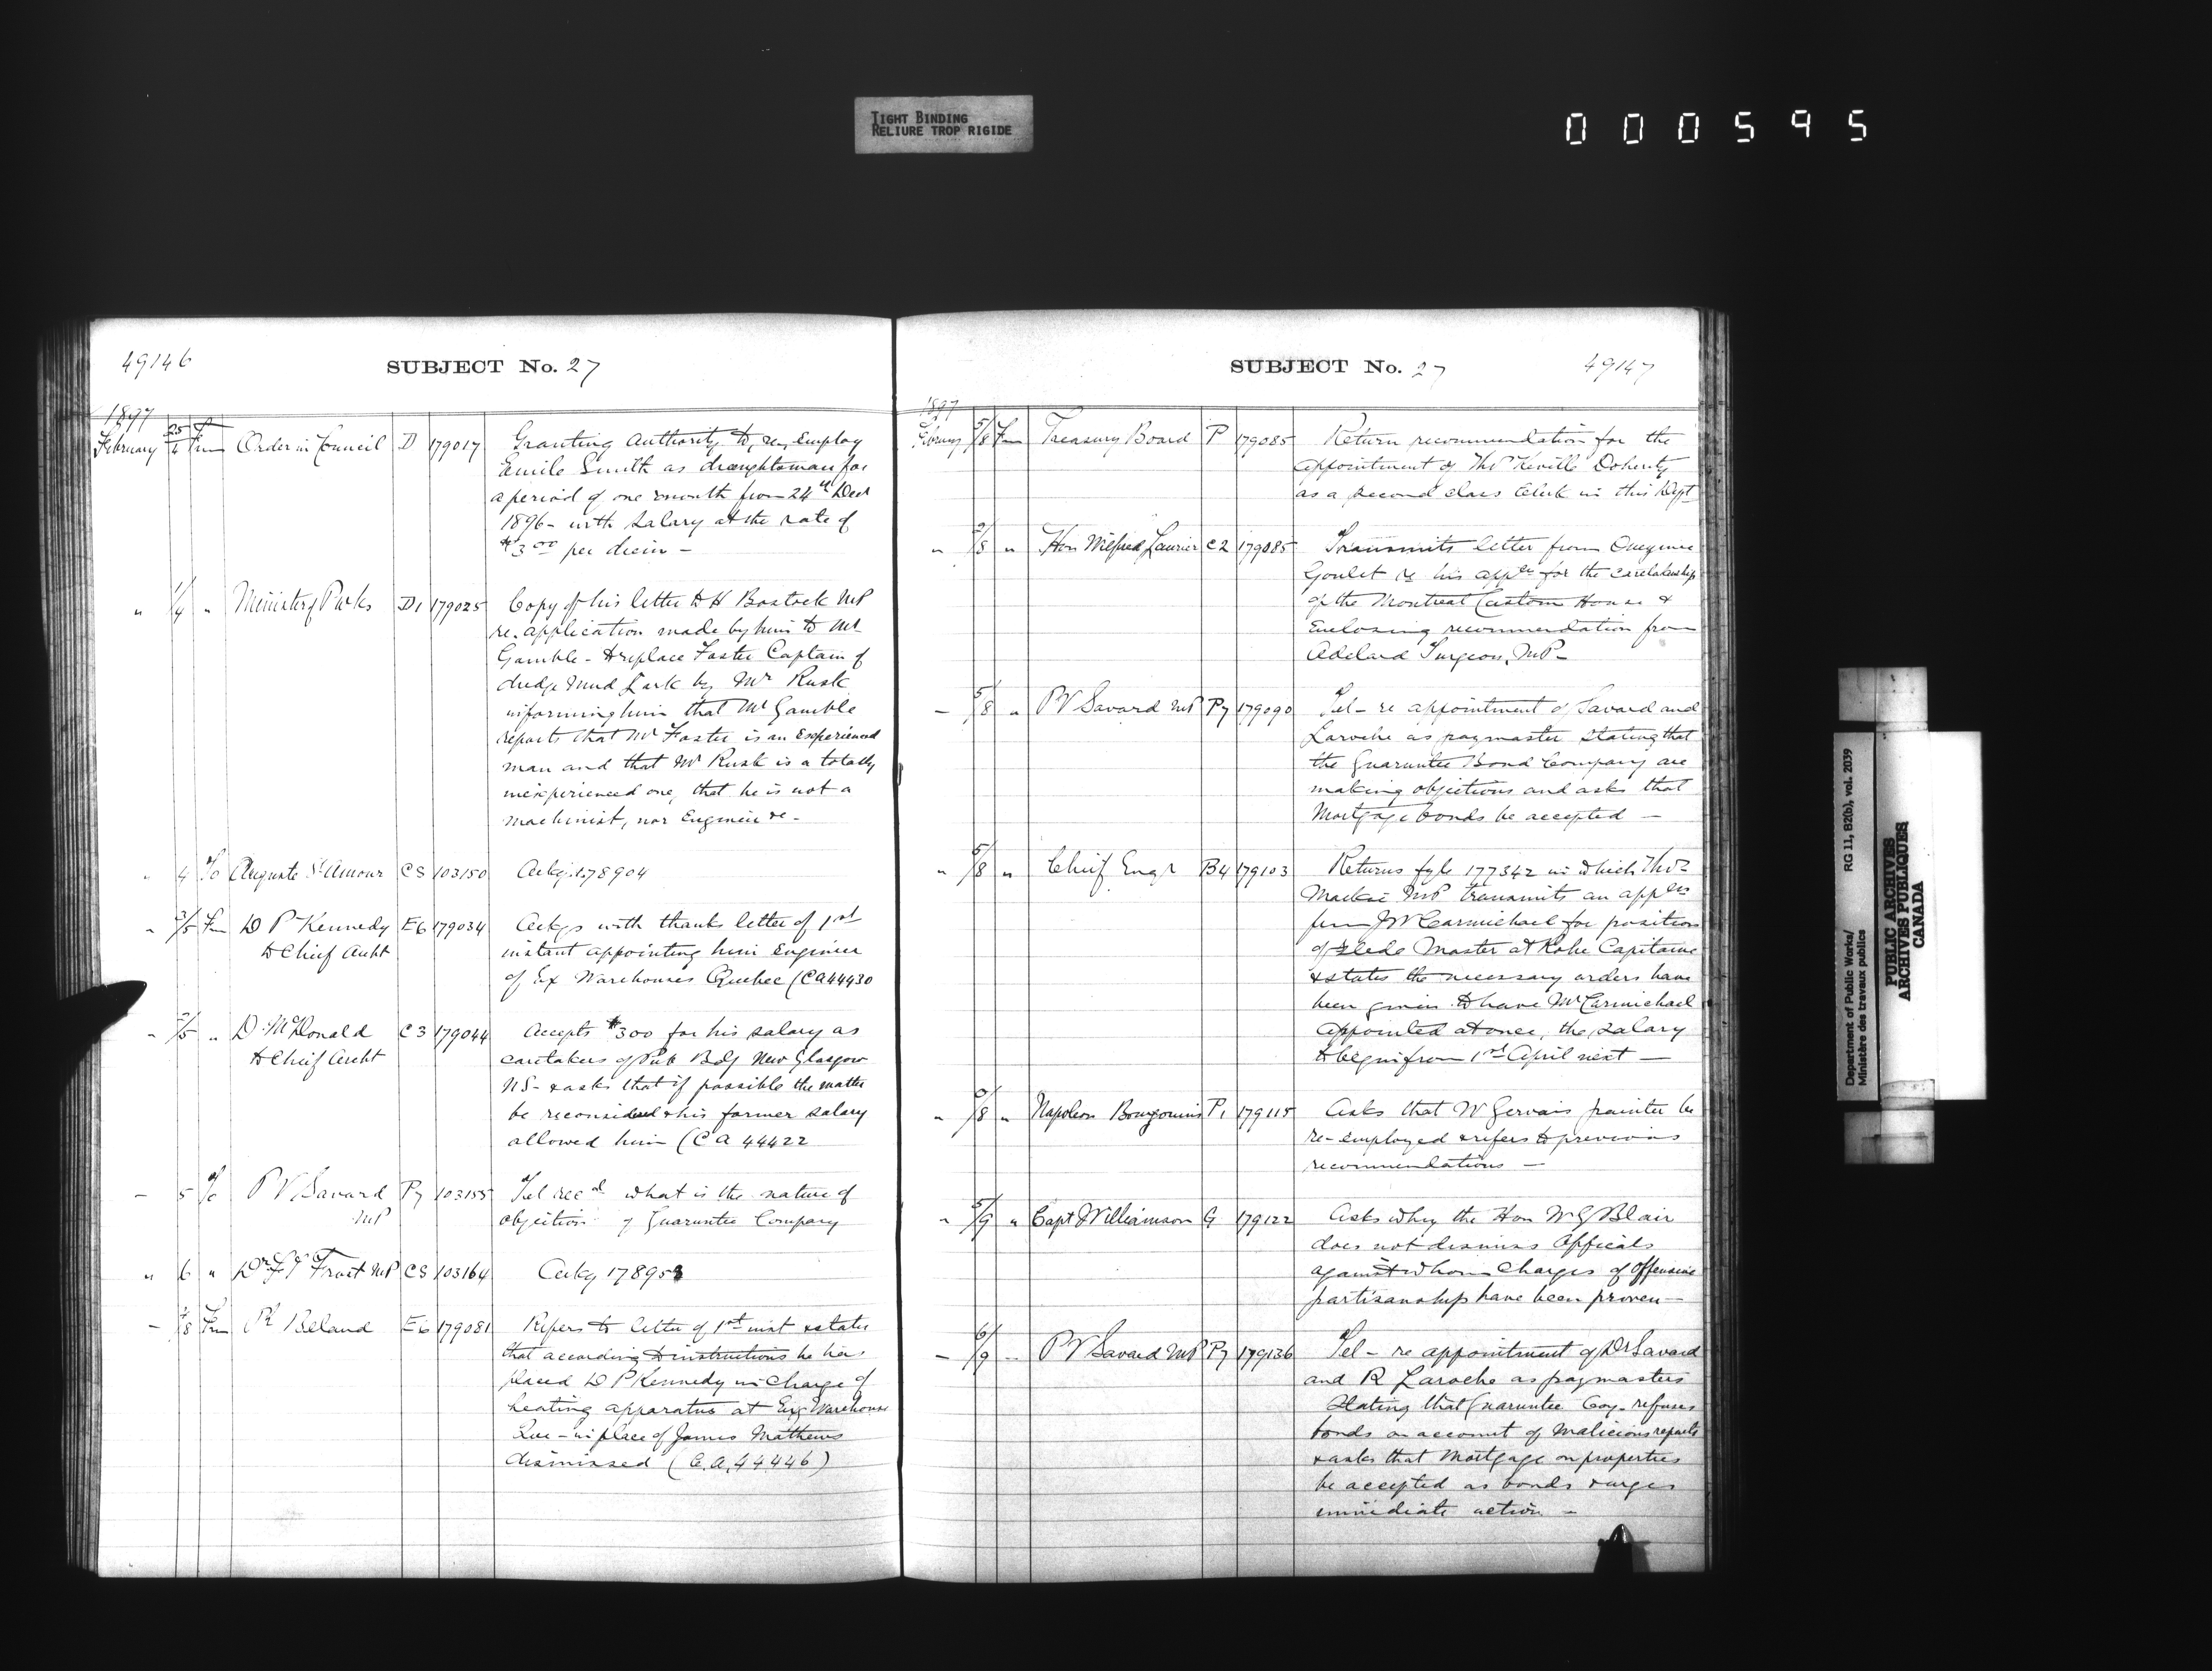 TIGHT BINDING
RELIURE TROP RIGIDE
000595
49146
SUBJECT No. 27
1897
February 25/4 From Order in Council D 179017 Granting authority to re-employ
Emile Smith as draughtsman for
a period of one month from 24th Dec
1896 - with salary at the rate of
$3.00 per diem -
" 1/4 " Minister of P Wks D1 179025 Copy of his letter to H Bostock MP
re. application made by him to Mr
Gamble - to replace Foster Captain of
dredge Mud Lark by Mr Rusk
informing him that Mr Gamble
reports that Mr Foster is an Experienced
man and that Mr Rusk is a totally
inexperienced one, that he is not a
machinist, nor Engineer &c -
" 4 To Auguste St Amour CS 103150 Ackg 178904
" 3/5 Fm D P Kennedy E6 179034 Ackgs with thanks letter of 1st
to Chief Archt instant appointing him Engineer
of Ex Warehouses Quebec (CA 44430
" 3/5 " D. McDonald C3 179044 Accepts $300 for his salary as
to Chief Archt caretakers of Pub Bdg New Glasgow
NS - & asks that if possible the matter
be reconsidered & his former salary
allowed him (CA 44422
" 5 To P V Savard P7 103155 Tel recd what is the nature of
MP objection of Guaruntee Company
" 6 " Dr F T Frost MP CS 103164 Ackg 178958
" /8 Frm R Beland E6 179081 Refers to letter of 1st inst & states
that according to instructions he has
placed D P Kennedy in Charge of
heating apparatus at Exg Warehouse
Que - in place of James Mathews
dismissed (C.A. 44446)
SUBJECT No. 27
49147
1897
February 5/8 Fm Treasury Board P 179085 Return recommendation for the
appointment of Thos Neville Doherty
as a second class Clerk in this Dept
" 2/8 " Hon Wilfred Laurier C2 179085 Transmits letter from Onezime
Goulet re his appln for the caretakership
of the Montreal Custom House &
Enclosing recommendation from
Adelard Turgeon, MP -
" 5/8 " P V Savard MP P7 179090 Tel - re appointment of Savard and
Laroche as paymaster stating that
the Guaruntee Bond Company are
making objections and asks that
Mortgage bonds be accepted -
" 5/8 " Chief Engr B4 179103 Returns fyle 177342 in which Thos
Mackie MP transmits an appln
from J W Carmichael for position
of slide Master at Roche Capitaine
& states the necessary orders have
been given to have Mr Carmichael
appointed at once, the salary
to begin from 1st April next -
" /8 " Napoleon Bourgouin P1 179115 Asks that W Gervais painter be
re-employed & refers to previous
recommendations -
" 5/9 " Capt Williamson G 179122 Asks why the Hon W G Blair
does not dismiss Officals
against whom Charges of Offensive
partisanship have been proven -
" 6/9 " P V Savard MP P7 179136 Tel - re appointment of Dr Savard
and R Laroche as paymasters
Stating that Guaruntee Coy - refuses
bonds on account of malicious reports
& asks that Mortgage on properties
be accepted as bonds & urges
immediate action -
Department of Public Works/ RG 11, B2(b), vol. 2039
Ministère des travaux publics
PUBLIC ARCHIVES
ARCHIVES PUBLIQUES
CANADA